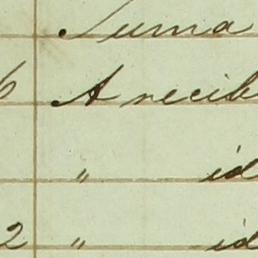 Suma
6 A recib
" id
2 " id